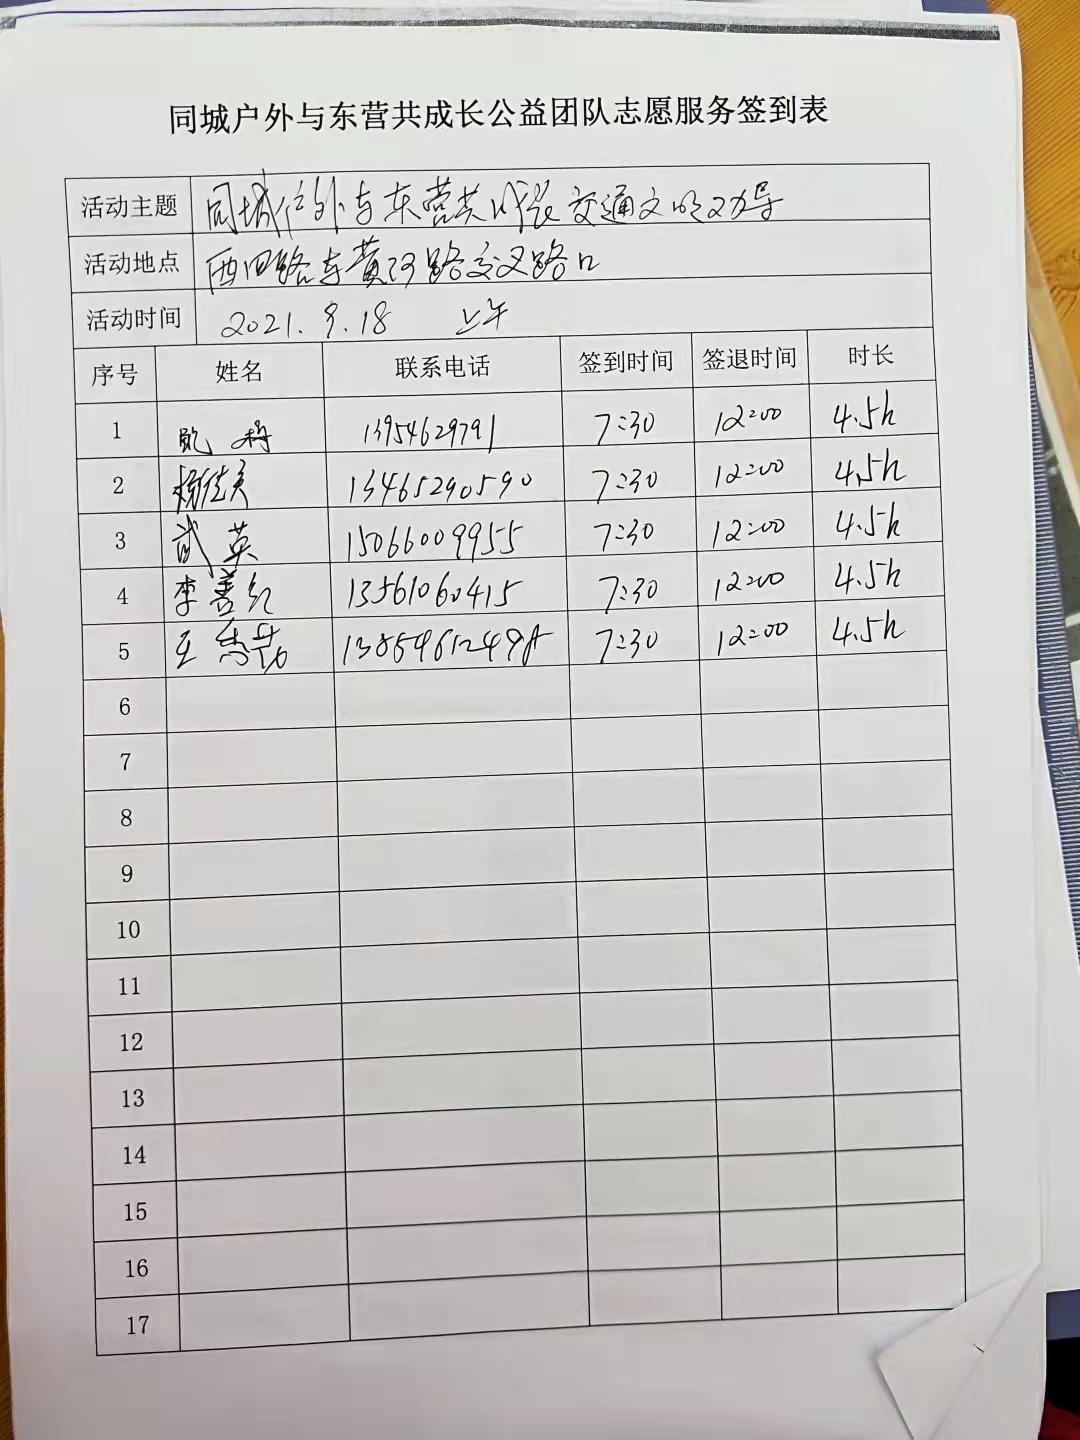 同城户外与东营共成长公益团队志愿服务签到表
活动主题 同城户外与东营共成长交通文明劝导
活动地点 西四路与黄河路交叉路口
活动时间 2021.9.18 上午
序号 姓名 联系电话 签到时间 签退时间 时长
1 13954629791 7:30 12:00 4.5h
2 13465290590 7:30 12:00 4.5h
3 武英 15066009955 7:30 12:00 4.5h
4 李善红 13561060415 7:30 12:00 4.5h
5 王秀花 7:30 12:00 4.5h
6
7
8
9
10
11
12
13
14
15
16
17